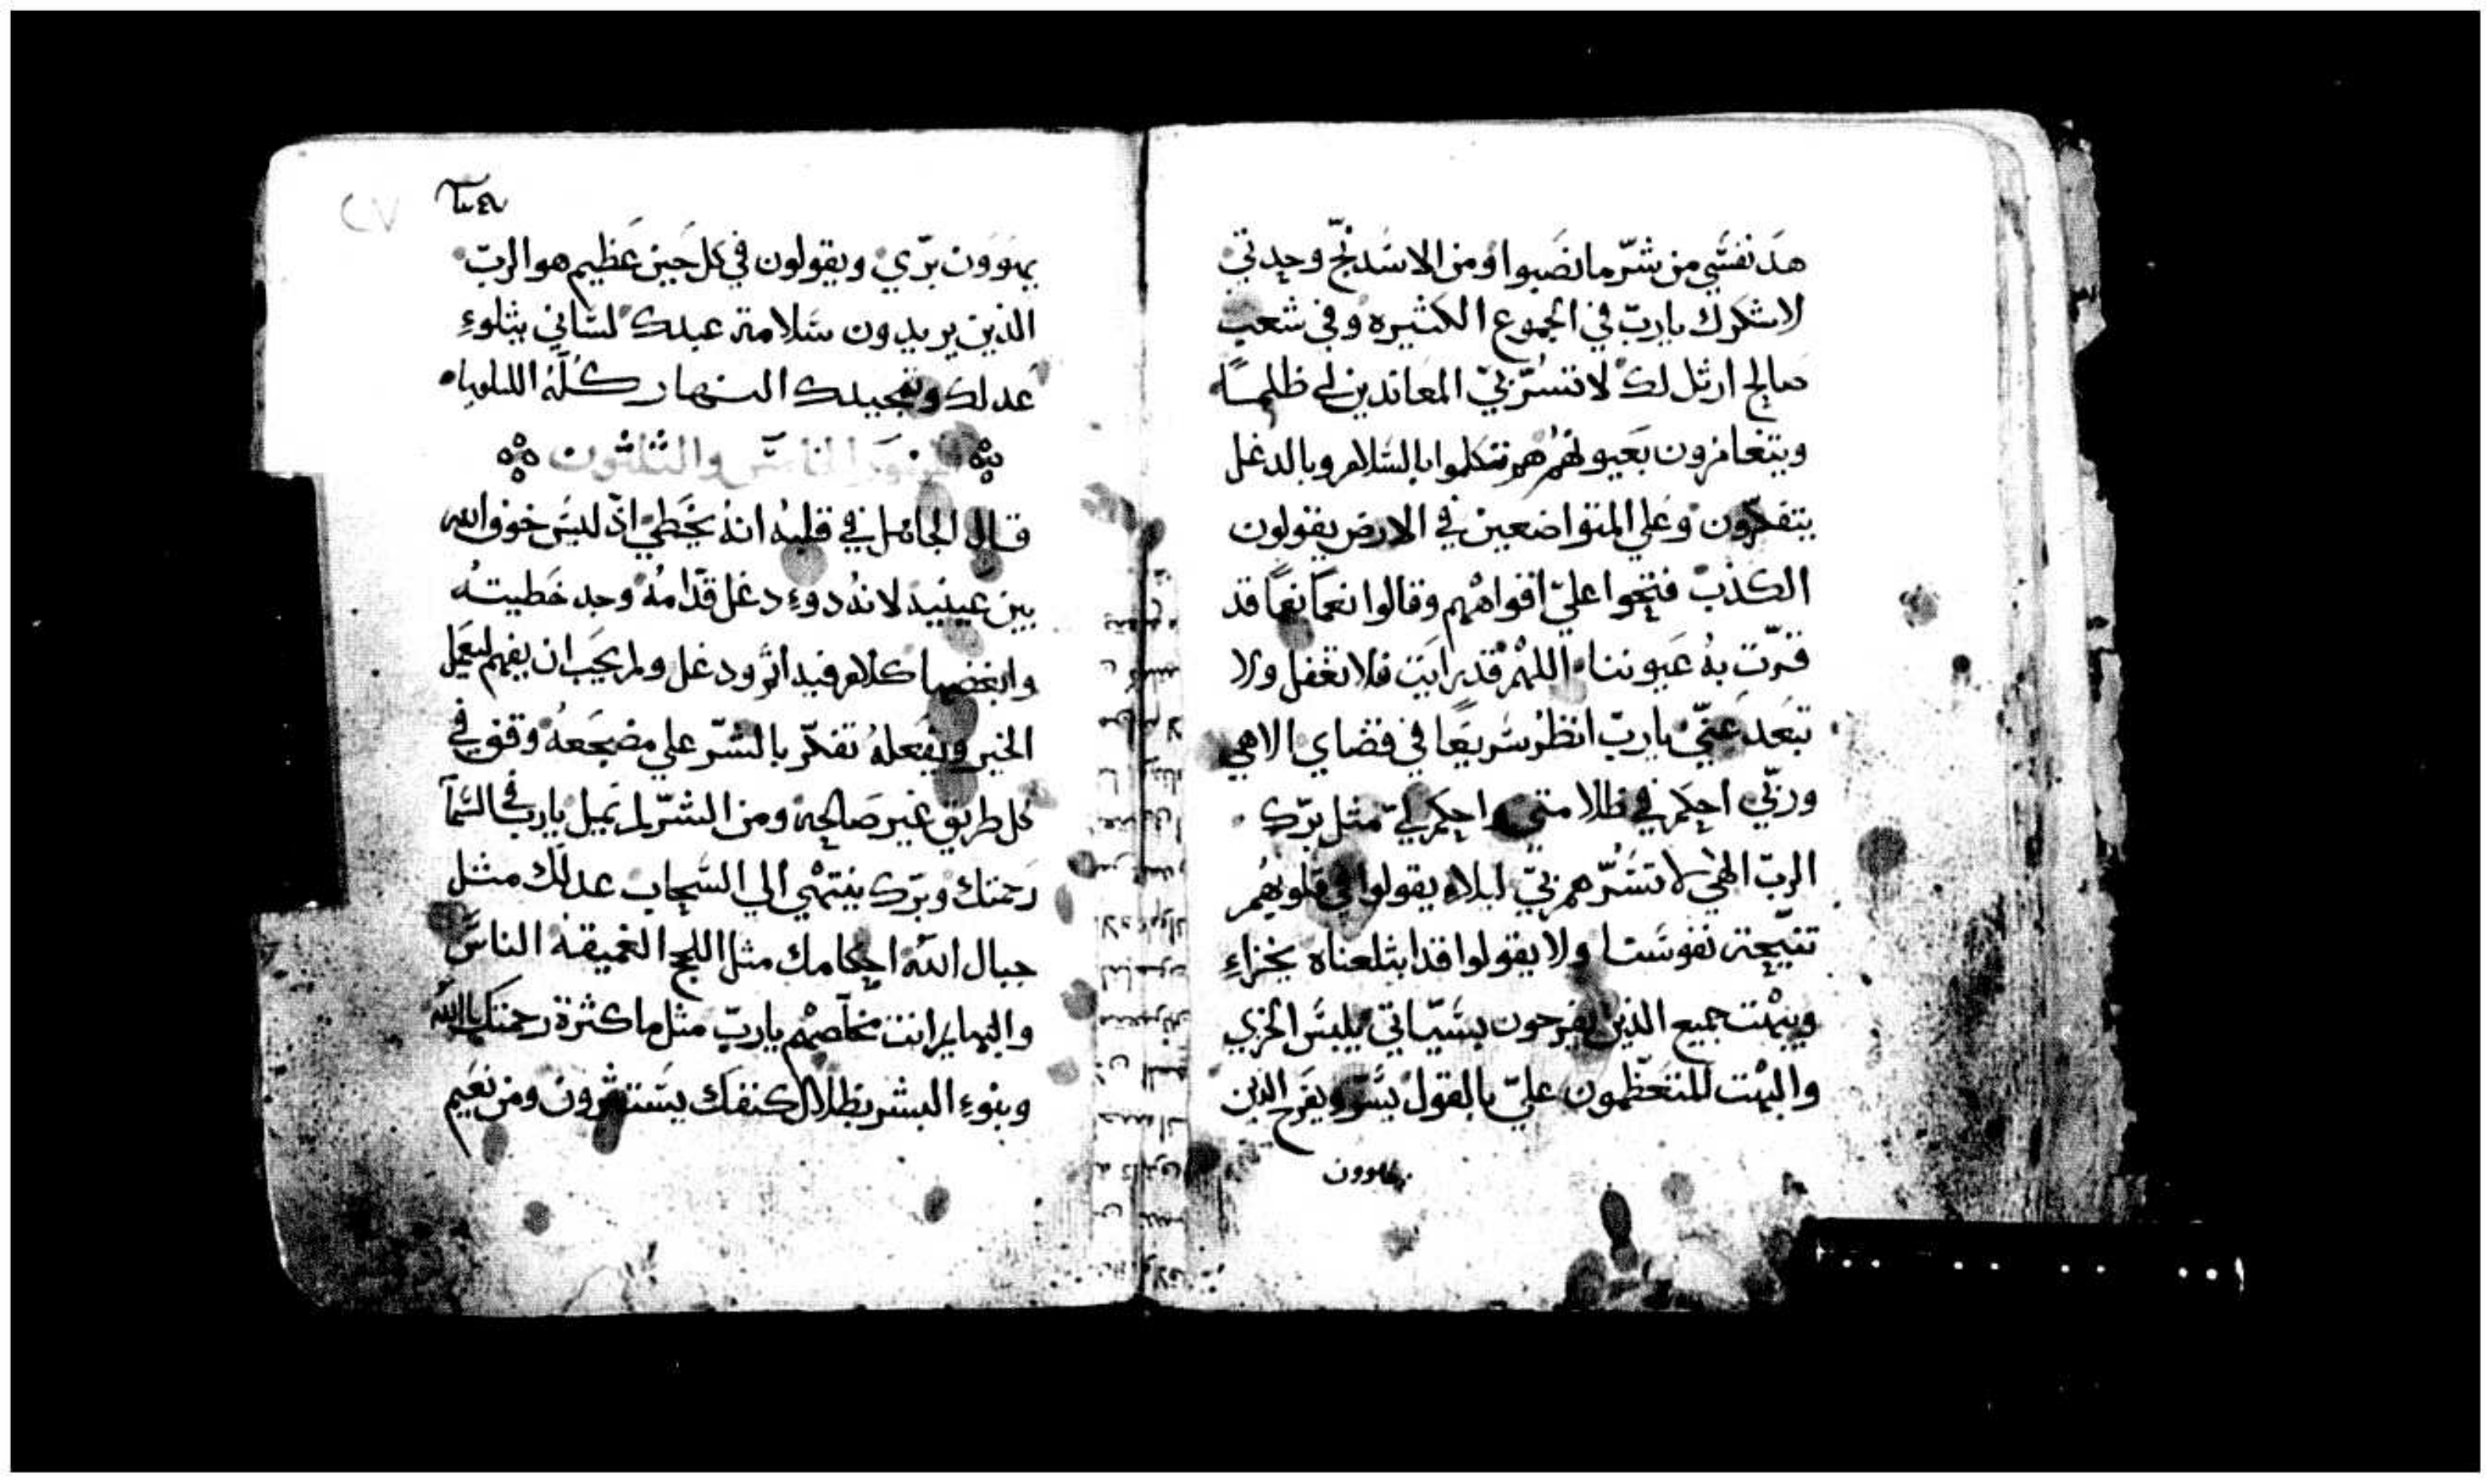 هد نفسي من شر ما نصبوا ومن الاسد نج وحدتي
لاشكرك يارب في الجموع الكثيره وفي شعب
صالح ارتل لك لا تسر بي المعاندين لي ظلمًا
ويتغامزون بعيونهم هم تتكلموا بالسلام وبالدغل
يتفكرون وعلي المتواضعين في الارض يقولون
الكذب فتحوا علي افواههم وقالوا نعمًا نعمًا قد
قرت به عيوننا اللهم قد رايت فلا تغفل ولا
تبعد عني يارب انظر سريعًا في قضاي الاهي
وربي احكم في ظلامتي واحكم لي مثل برك
الرب الهي لا تسرهم بي ليلا يقولوا في قلوبهم
تنيحة نفوسنا ولا يقولوا قد ابتلعناه بخزاءِ
ويبهت جميع الذين يفرحون بسياتي يلبس الخزي
والبهت المتعظمون علي بالقول يسر ويفرح الذين
يهوون
٢٧
يهوون بري ويقولون في كل حين عظيم هو الرب
الذين يريدون سلامة عبدك لساني يتلوءِ
عدلك وتمجيدك النهار كله الليلويا
المزمور الخامس والثلثون
قال الجاهل في قلبه انه يخطي اذ ليس خوف الله
بين عينيه لانه دوءِ دغل قدامه وجد خطيته
وابغضها كلام فيه اثم ودغل ولم يحب ان يفهم ليعمل
الخير ويفعله تفكر بالشر علي مضجعه وقف في
كل طريق غير صالحه ومن الشر لم يميل يارب في السمآ
رحمتك وبرك ينتهي الي السحاب عدلك مثل
جبال الله احكامك مثل اللجج العميقه الناس
والبهايم انت مخلصهم يارب مثل ما كثرة رحمتك يا الله
وبنوءِ البشر بظلال كنفك يستترون ومن نعيم